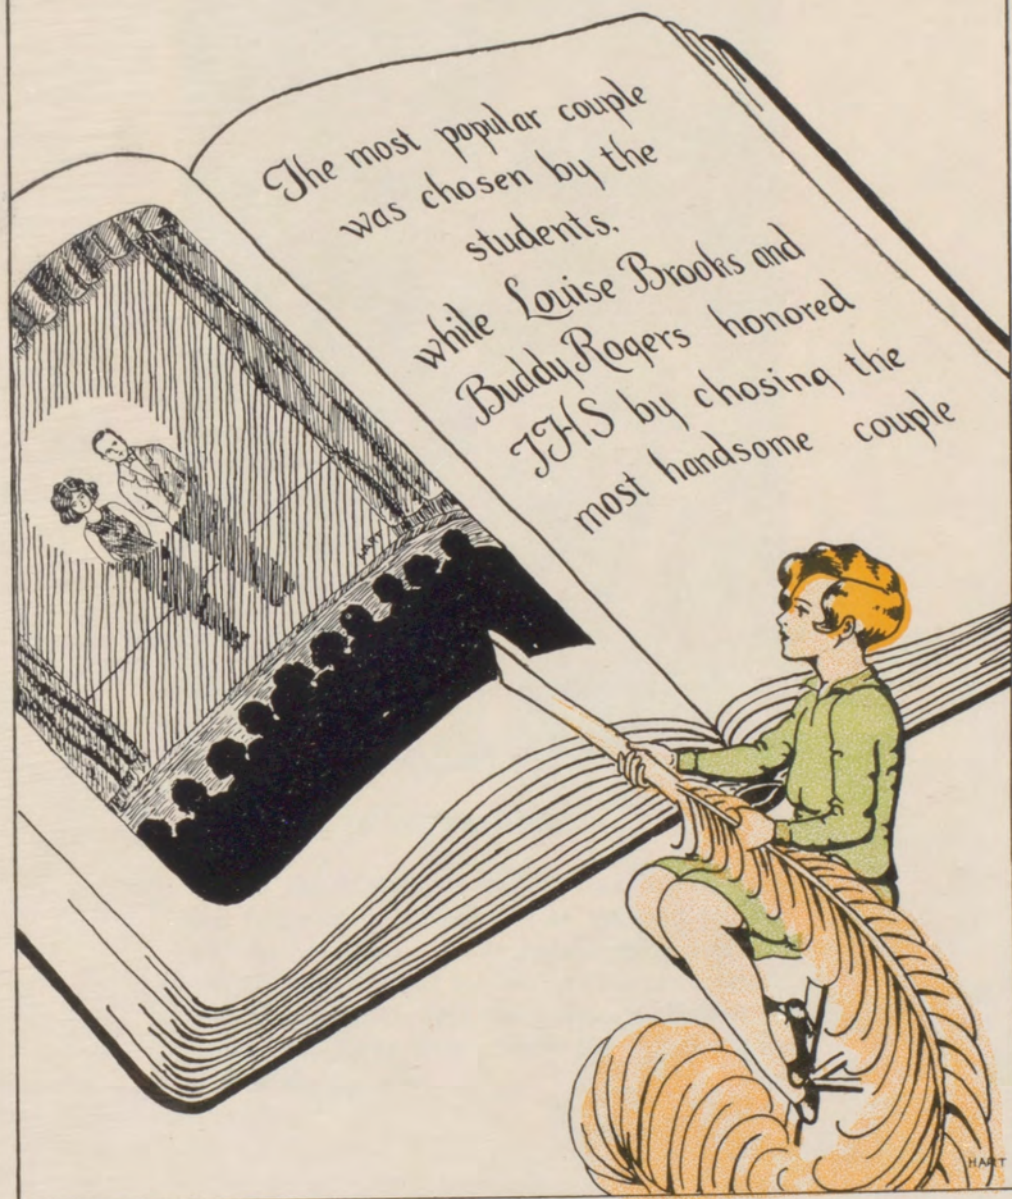 The most popular couple
was chosen by the
students.
while Louise Brooks and
Buddy Rogers honored
JHS by chosing the
most handsome couple
HART
HART